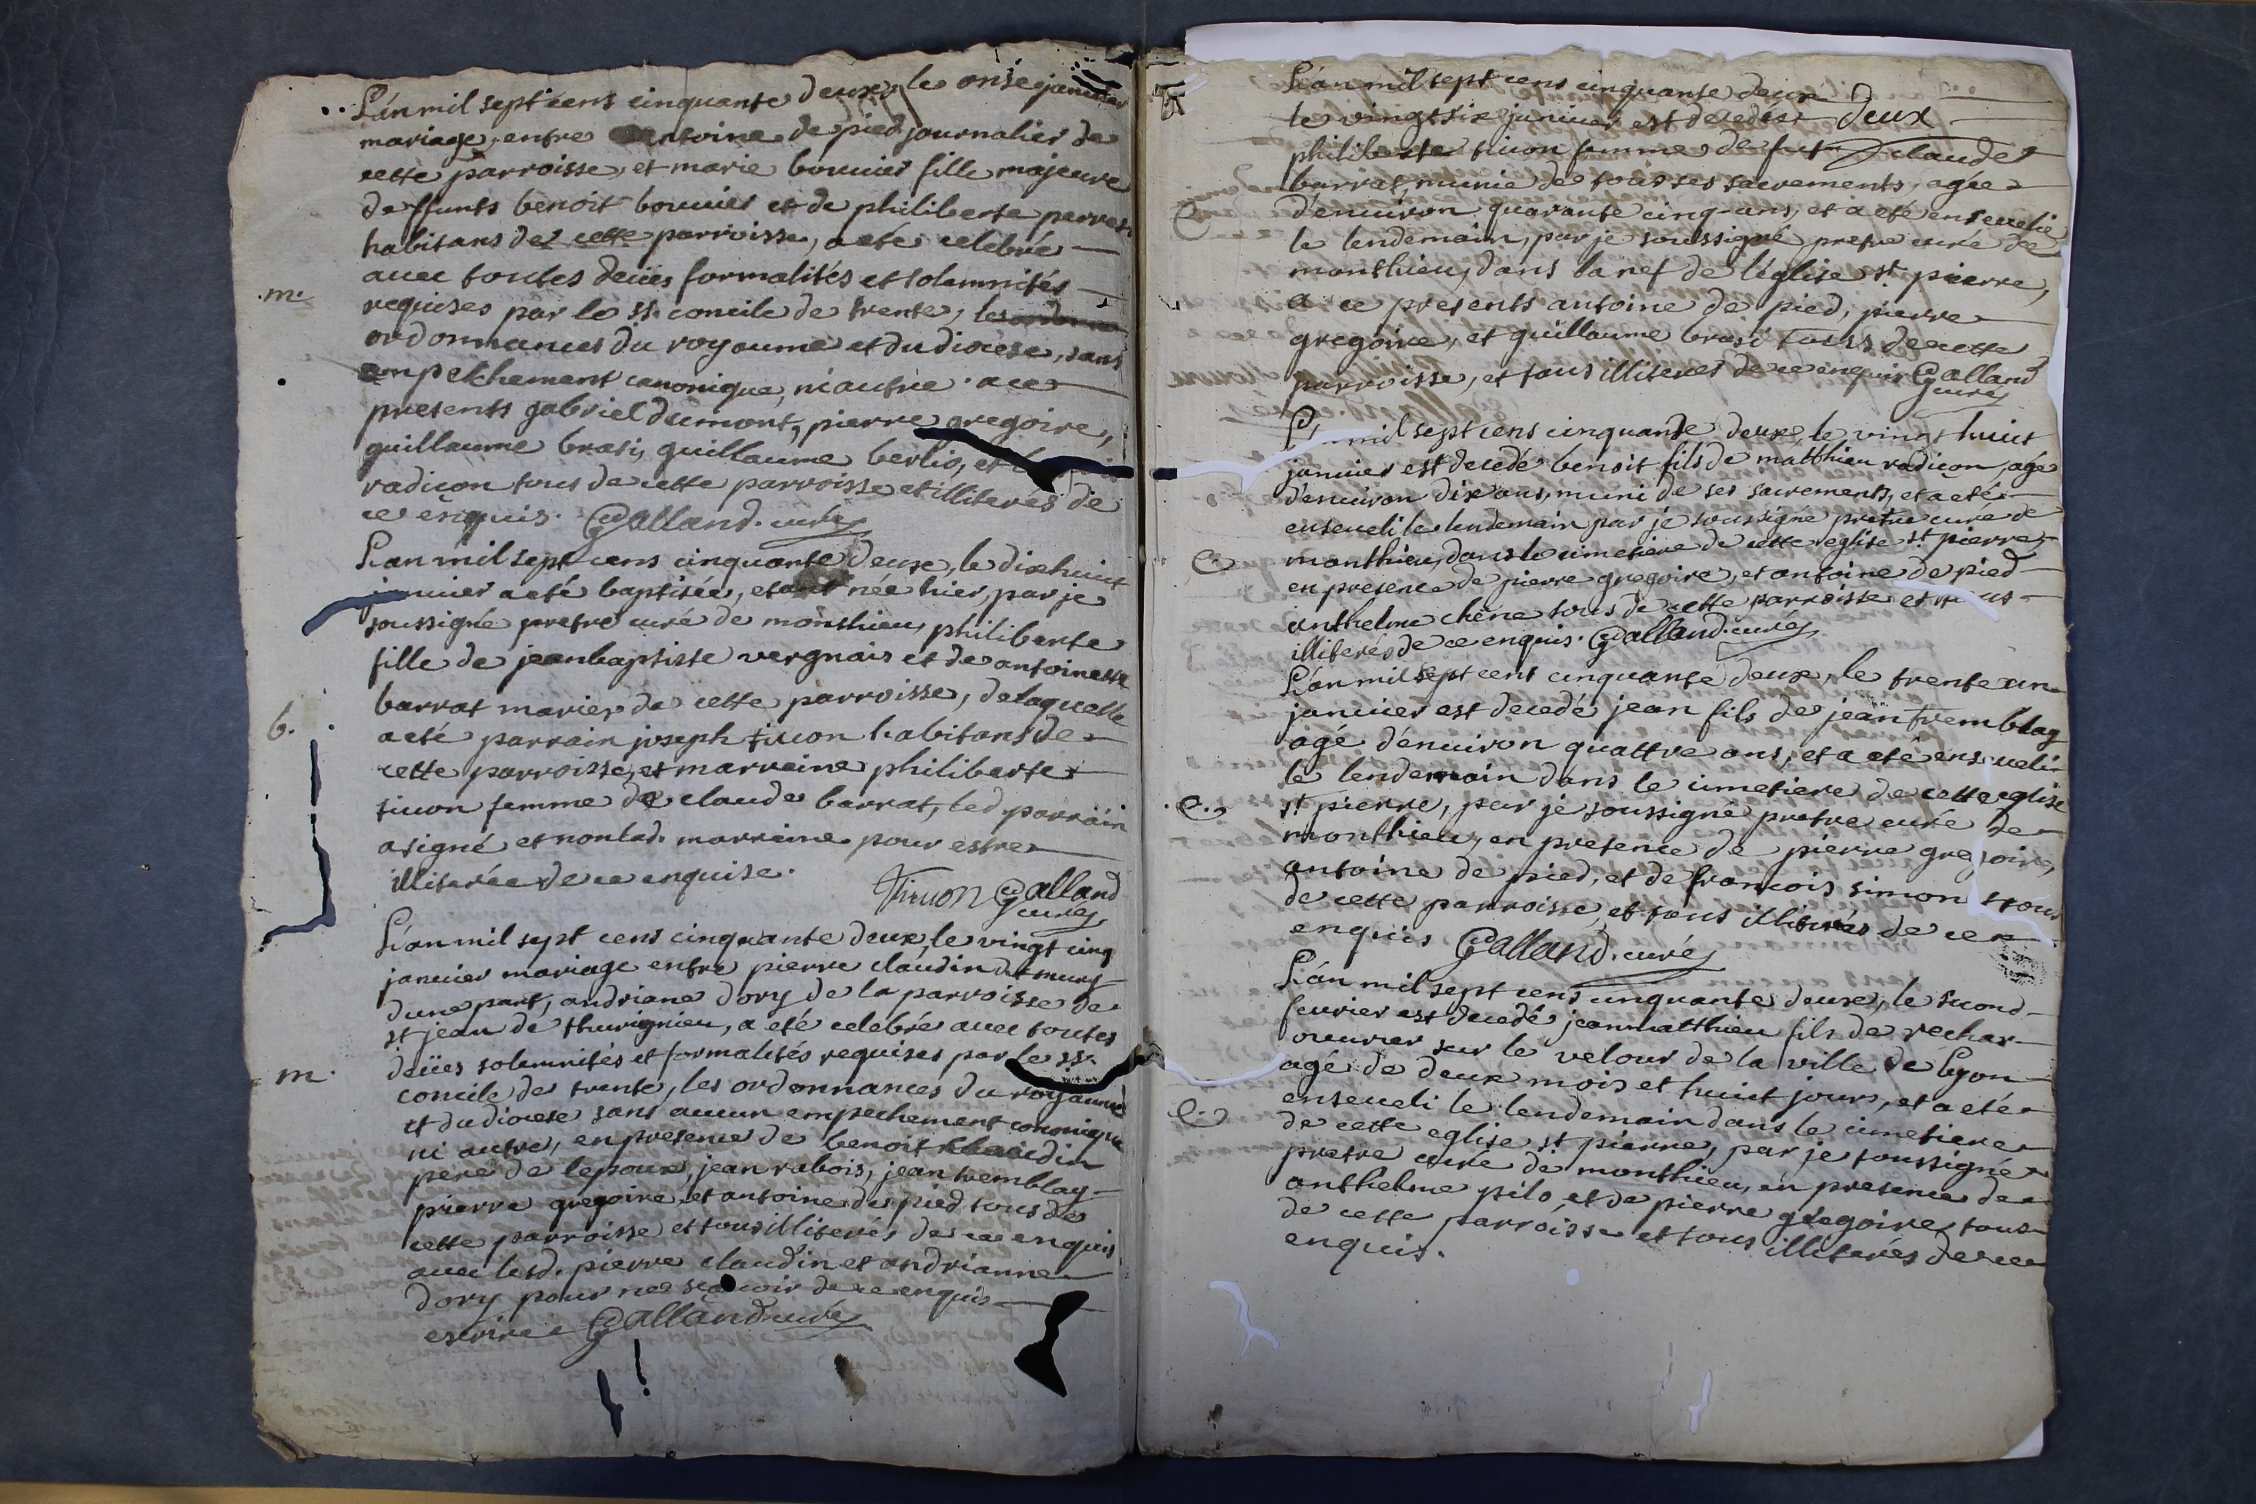 L'an mil sept cens cinquante deux, le onse janvier
mariage, entre antoine de pied journalier de
cette parroisse, et marie bouvier fille majeure
deffunts benoit bouvier et de philiberte perret
habitans de cette parroisse, a eté celebré
avec toutes deües formalités et solemnités
.m.
requises par le st. concile de trente, les
ordonnances du royaume et du diocese, sans
empelchement canonique, ni autre. a ce
presents gabriel dumont, pierre gregoire,
guillaume brasi, guillaume berlio, et
radicon tous de cette parroisse et illiterés de
ce enquis. Galland. curé
L'an mil sept cens cinquante deux, le dixhuict
janvier a eté baptisée, etant née hier, par je
soussigné pretre curé de monthieu, philiberte
fille de jeanbaptiste vergnais et de antoinette
barrat mariez de cette parroisse, de laquelle
b.
a eté parrain joseph ticon habitans de
cette parroisse, et marraine philiberte
ticon femme de claude barrat, led. parrain
a signé et non lad. marraine pour estre
illiterée de ce enquise.
Ticon Galland
curé
L'an mil sept cens cinquante deux le vingt cinq
janvier mariage entre pierre claudin
d'une part, andriane dory de la parroisse de
st jean de thurignieu, a eté celebré avec toutes
deües solemnités et formalités requises par le st.
m.
concile de trente, les ordonnances du royaume
et du diocese sans aucun empechement canonique
ni autre, en presence de benoit claudin
pere de lepoux, jean rabois, jean tremblay
pierre gregoire, et antoine de pied tous de
cette parroisse et tous illiterés de ce enquis
avec lesd. pierre claudin et andrianne
dory pour ne scavoir de ce enquis
escrire Galland curé
L'an mil sept cens cinquante deux
le vingt six janvier est decedée deux
philiberte ticon femme de claude
barrat, munie de tous ses sacrements, agée
d'environ quarante cinq ans, et a eté ensevelie
e
le lendemain, par je soussigné pretre curé de
monthieu, dans la nef de l'église st. pierre,
a ce presents antoine de pied, pierre
gregoire, et guillaume brasi tous de cette
parroisse, et tous illiterés de ce enquis Galland
curé
L'an mil sept cens cinquante deux, le vingt huict
janvier est decedé benoit fils de matthieu radicon, agé
d'environ dix ans, muni de ses sacrements, et a eté
enseveli le lendemain par je soussigné pretre curé de
e
monthieu, dans le cimetiere de cette eglise st. pierre
en presence de pierre gregoire, et antoine de pied
anthelme chêne tous de cette parroisse et tous
illiterés de ce enquis. Galland. curé
L'an mil sept cent cinquante deux, le trente un
janvier est decedé jean fils de jean tremblay
agé d'environ quattre ans, et a eté enseveli
le lendemain dans le cimetiere de cette eglise
e.
st. pierre, par je soussigné pretre curé de
monthieu, en presence de pierre gregoire,
antoine de pied, et de francois simon tous
de cette parroisse, et tous illiterés de ce
enquis Galland. curé
L'an mil sept cens cinquante deux, le second
fevrier est decedé jeanmatthieu fils de rechar
ouvrier sur le velour de la ville de lyon
agé de deux mois et huict jours, et a eté
e.
enseveli le lendemain dans le cimetiere
de cette eglise st pierre, par je soussigné
pretre curé de monthieu, en presence de
anthelme pilo, et de pierre gregoire, tous
de cette parroisse et tous illiterés de ce
enquis.